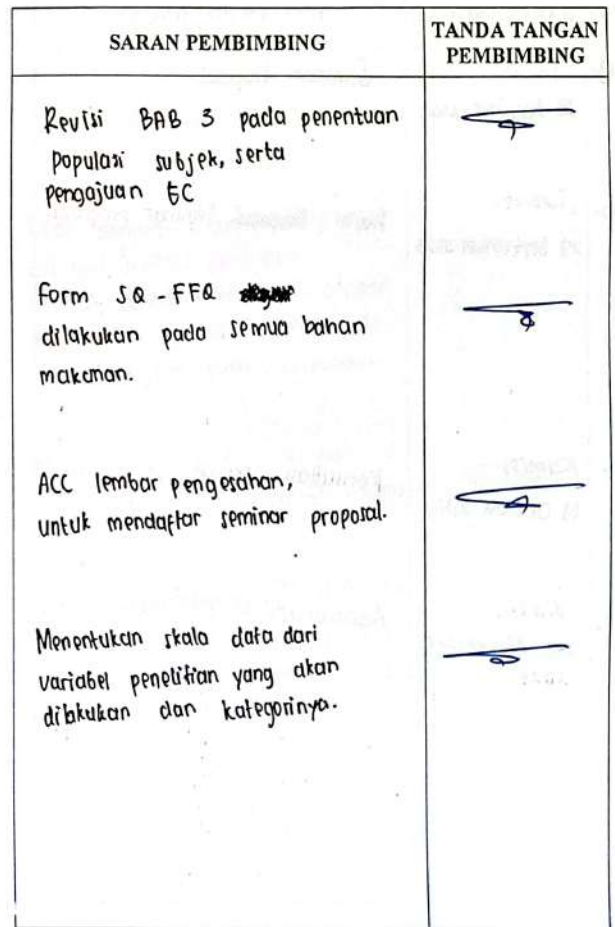 SARAN PEMBIMBING
TANDA TANGAN
PEMBIMBING
Revisi BAB 3 pada penentuan
populasi subjek, serta
pengajuan EC
Form SQ-FFQ
dilakukan pada semua bahan
makanan.
ACC lembar pengesahan,
untuk mendaftar seminar proposal.
Menentukan skala data dari
variabel penelitian yang akan
dilakukan dan kategorinya.